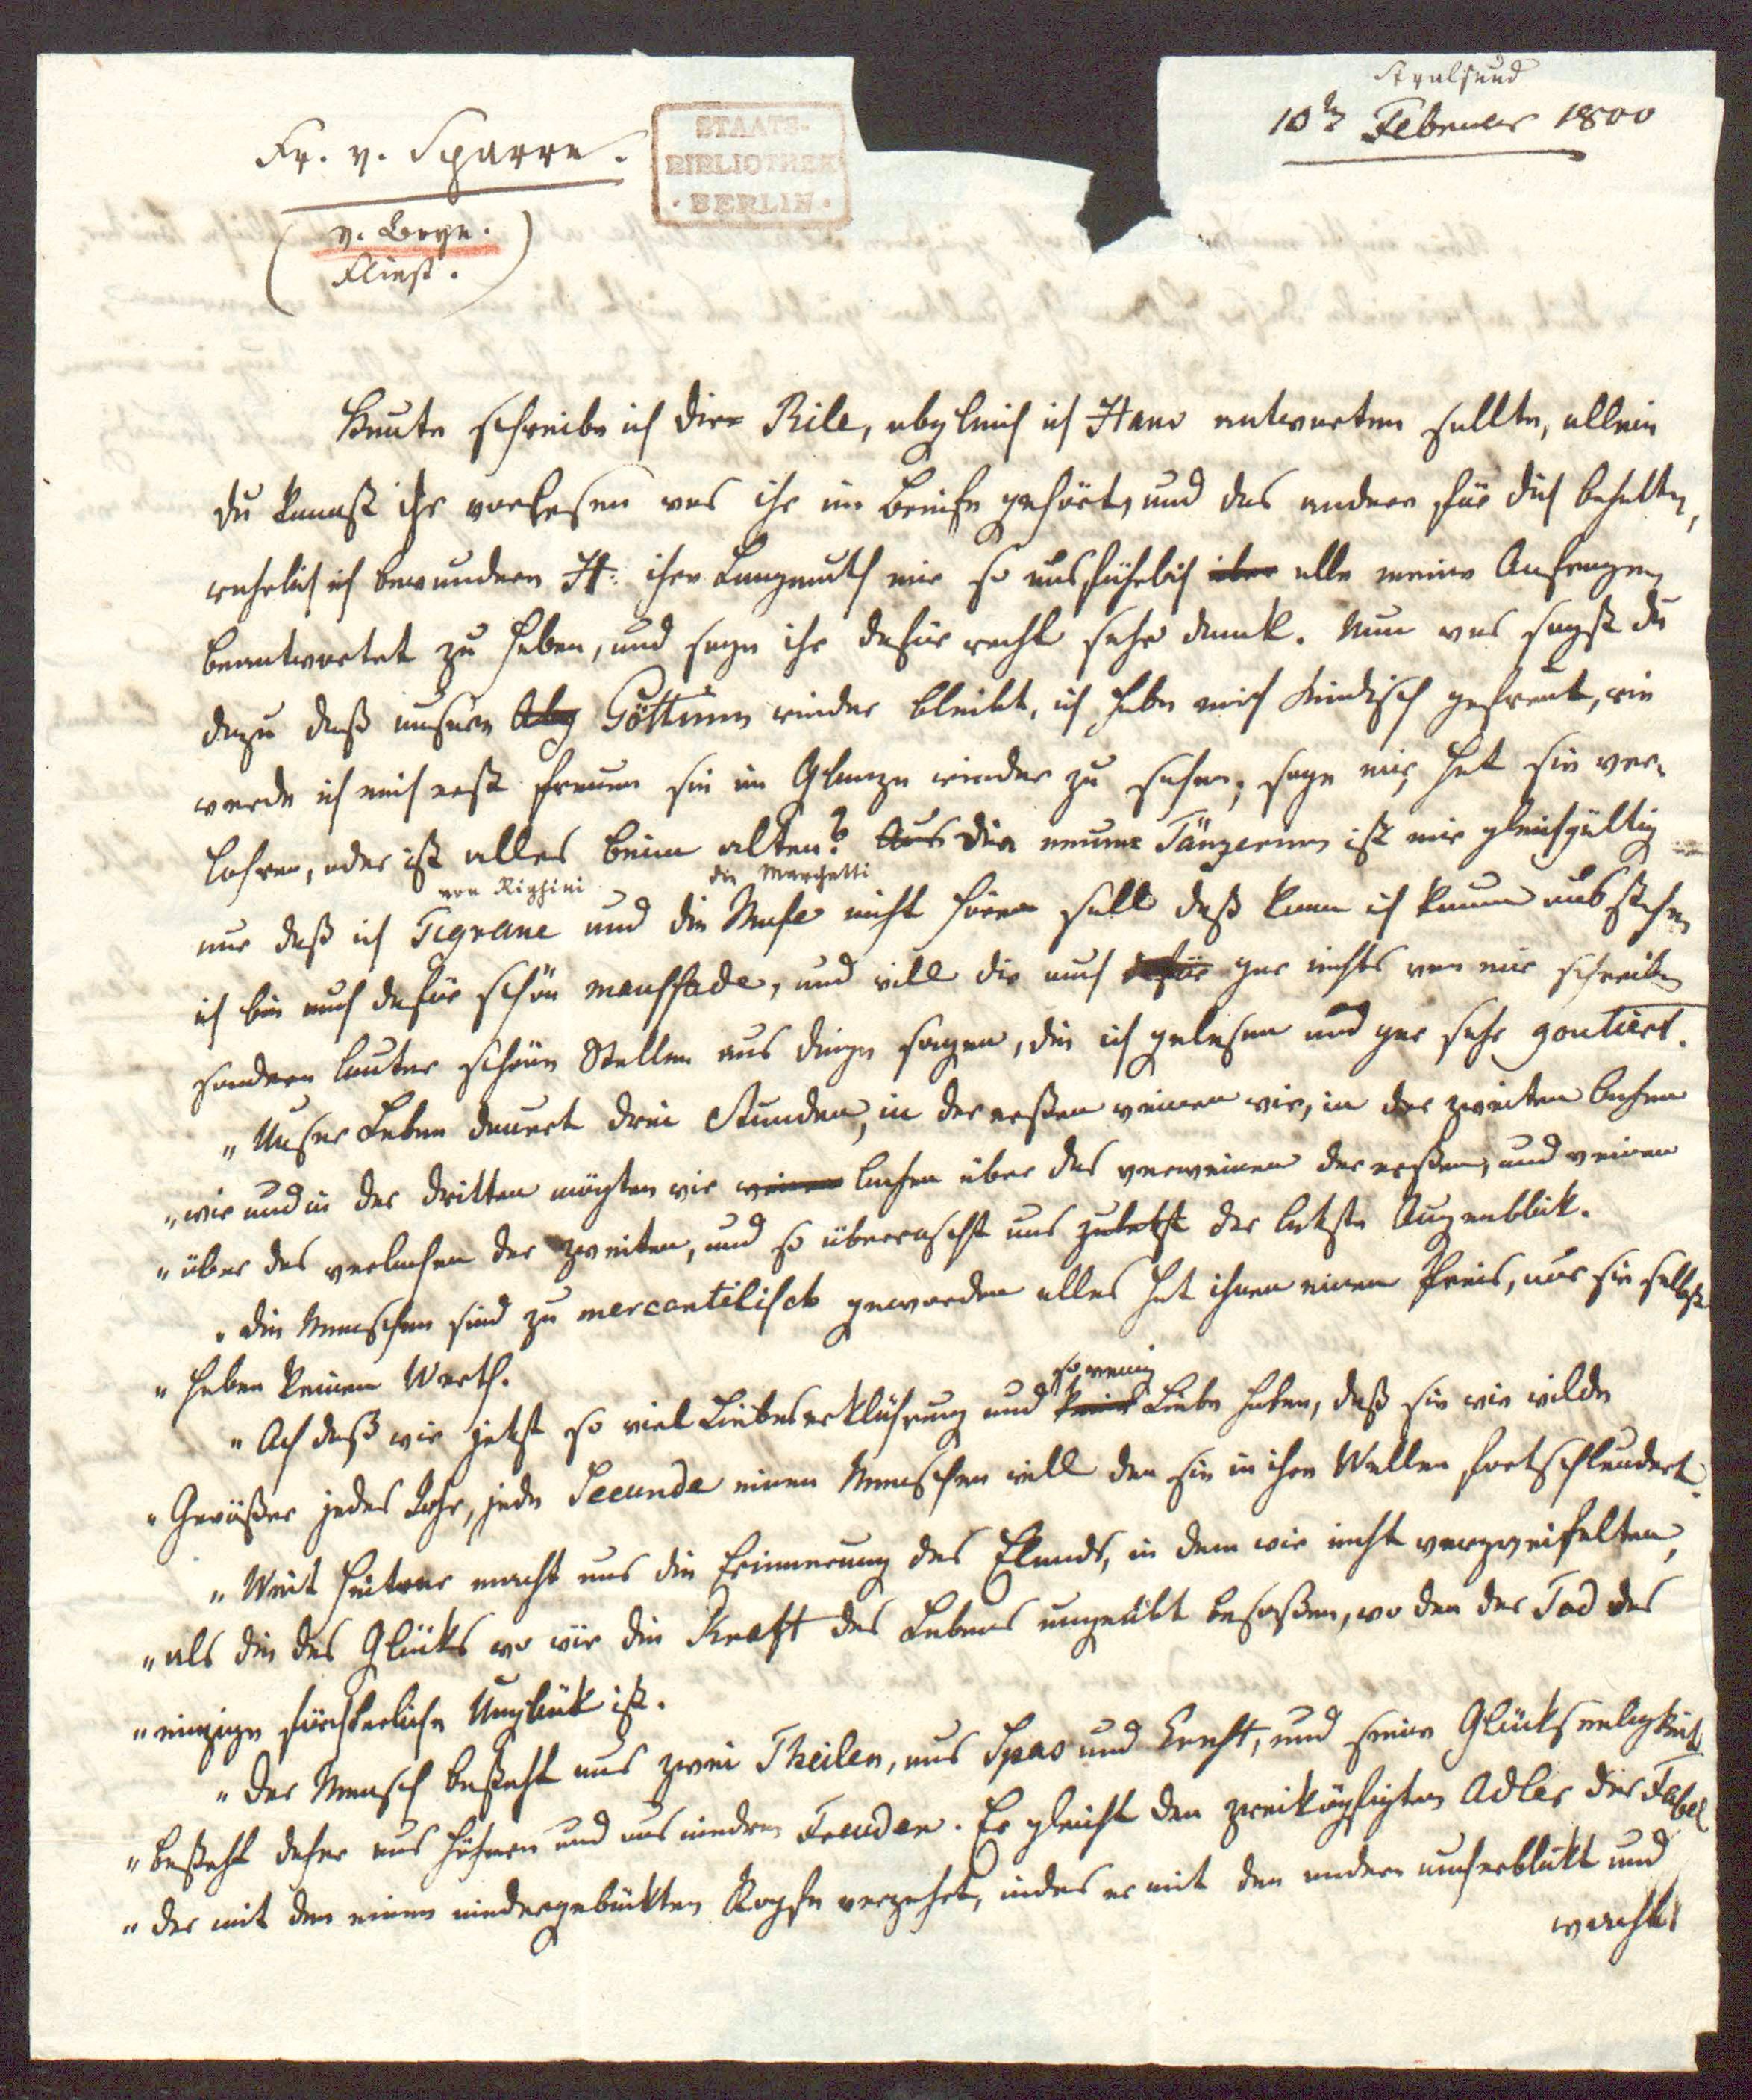 Stralsund
10ᵗ Februar 1800
Fr. v. Sparre.
STAATS-
BIBLIOTHEK
· BERLIN ·
( v. Boye.
Fliess. )
Heute schreibe ich dir Rile, obgleich ich Hane antworten sollte, allein
du kannst ihr vorlesen was ihr im Briefe gehört, und das andere für dich behalten,
ich bewundere H: ihre Langmuth mir so ausführlich über alle meine Anfragen
beantwortet zu haben, und sage ihr dafür recht sehr dank. Nun was sagst du
dazu daß unsere Göttinn wieder bleibt, ich habe mich kindisch gefreut, wie
werde ich mich erst freuen sie im Glanze wieder zu sehen; sage mir, hat sie ver-
lohren, oder ist alles beim alten? Aus Die neue Tänzerinn ist mir gleichgültig
von Righini die Marchetti
nur daß ich Tigrane und die nicht hören soll daß kann ich kaum ausstehen
ich bin auch dafür schön maussade, und will dir auch dafür gar nichts von mir schreiben
sondern lauter schöne Stellen aus dinge sagen, die ich gelesen und gar sehr goutiert.
„Unser Leben dauert drei Stunden, in der ersten weinen wir, in der zweiten lachen
„wir und in der dritten mögten wir weinen lachen über das verweinen der ersten, und weinen
„über das verlachen der zweiten, und so überrascht uns zuletzt der letzte Augenblik.
„die Menschen sind zu mercantilisch geworden alles hat ihnen einen Preis, nur sie selbst
„haben keinen Werth.
so wenig
„Ach daß wir jetzt so viel Liebeserklährung und keine Liebe haben, daß sie wie wilde
„Gewäßer jedes Jahr, jede Secunde einen Menschen will den sie in ihre Wellen fortschleudert.
„Weit heitrer macht uns die Erinnerung des Elends, in dem wir nicht verzweifelten,
„als die des Glüks wo wir die Kraft des Lebens ungeübt besaßen, wo den der Tod das
„einzige fürchterliche Unglük ist.
„Der Mensch besteht aus zwei Theilen, aus Spas und Ernst, und seine Glückseeligkeit
„besteht daher aus höhern und aus niedern Freuden. Er gleicht den zweiköpfigten Adler der Fabel
„der mit den einen niedergebükten Kopfe verzehrt, indes er mit den andern umherblikt und
wacht